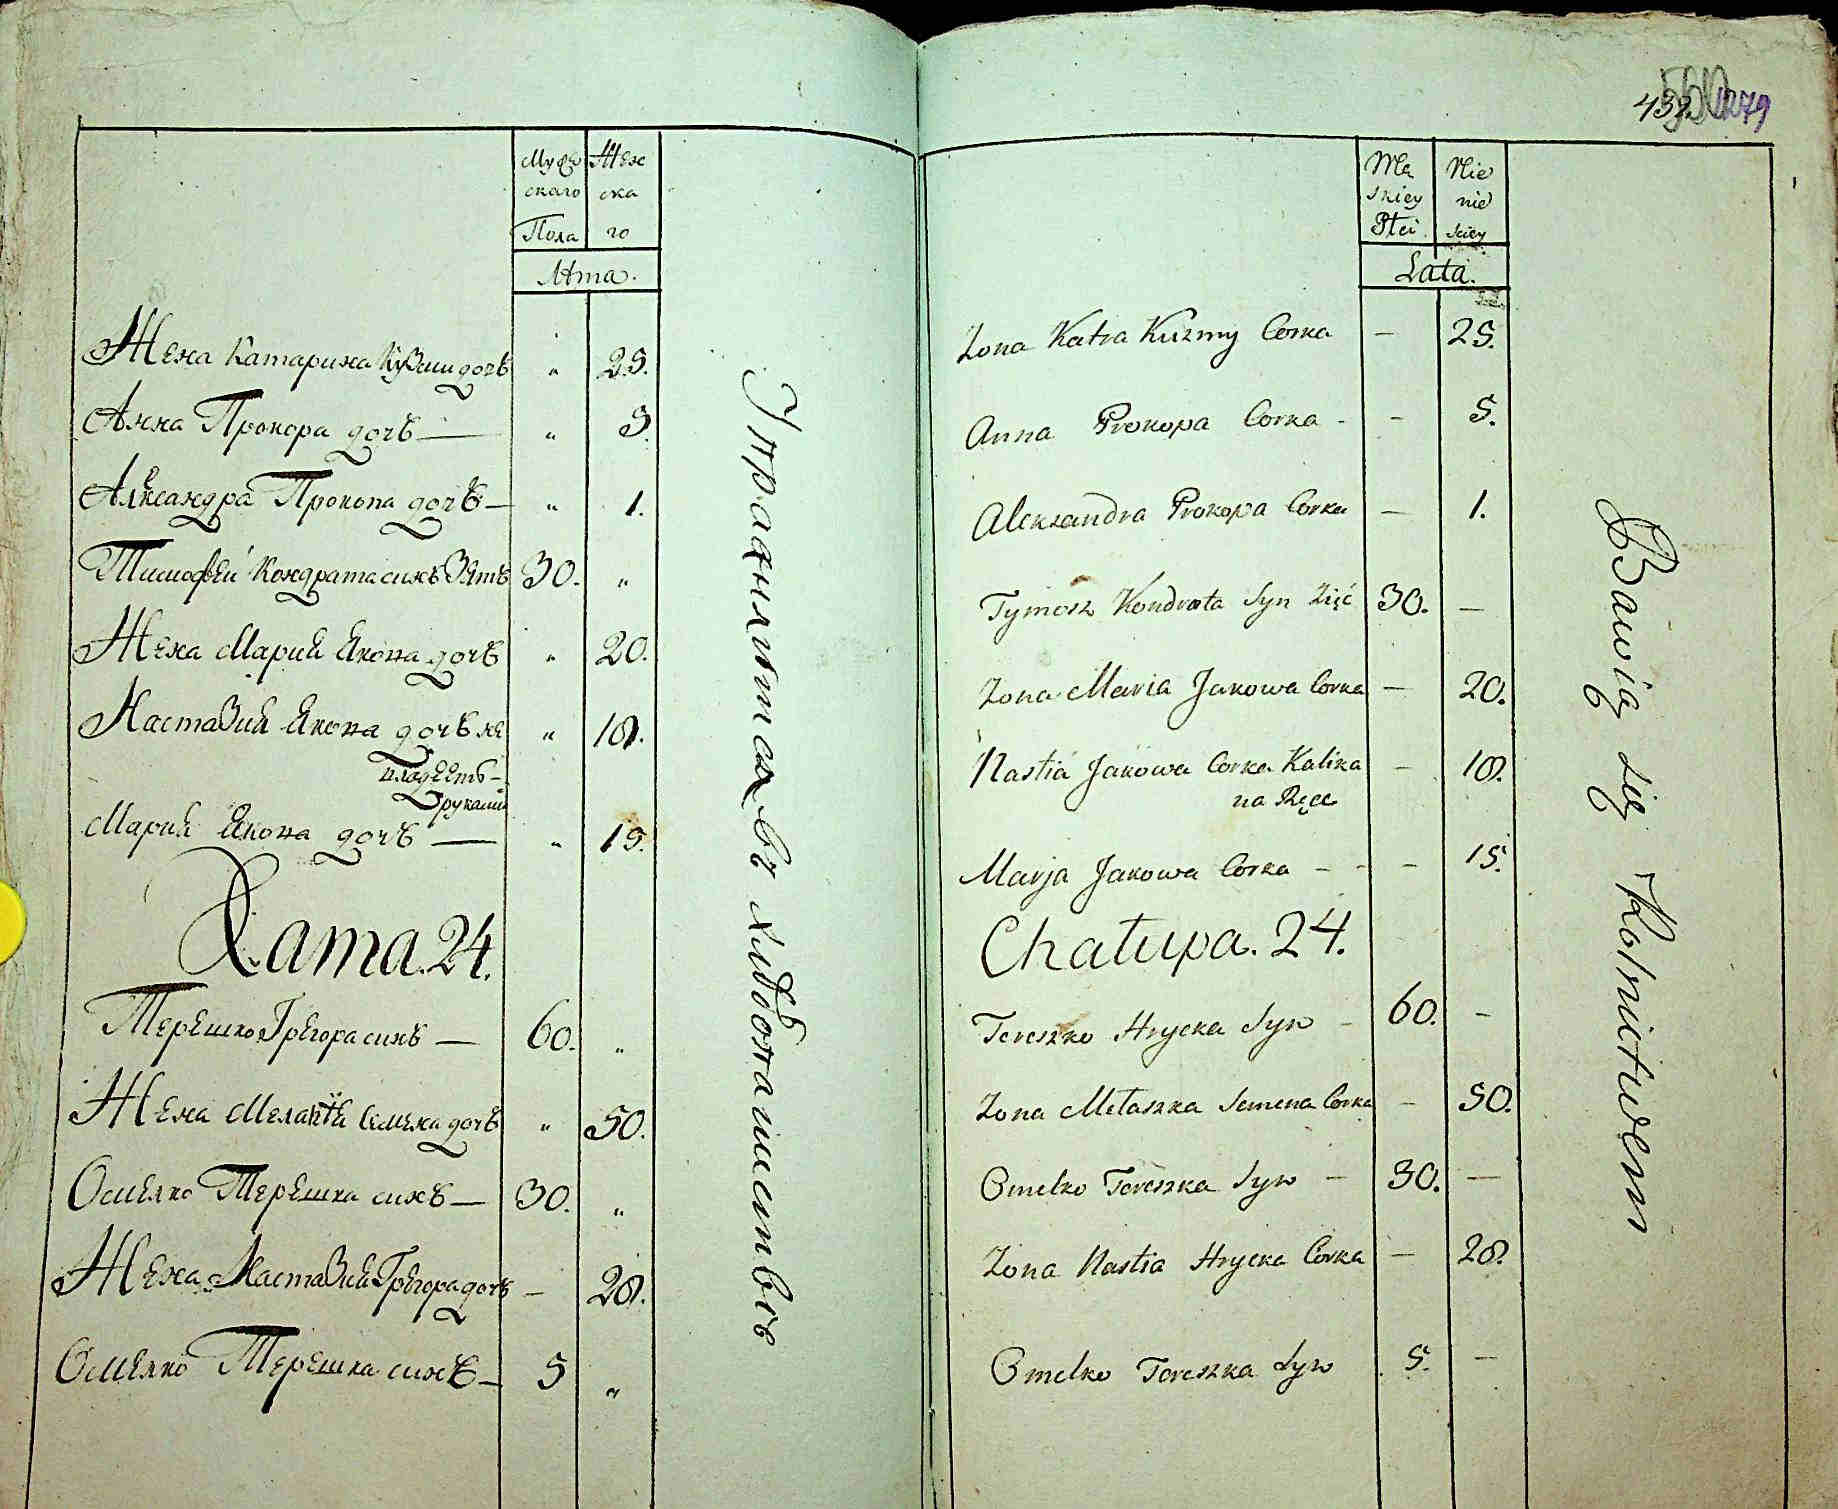 Муже Жен
скаго ска
Пола го
Лѣта.
Жена Катарина Кузми дочь „ 25.
Анна Прокора дочь — „ 5.
Александра Прокопа дочь — „ 1.
Тимофей Кондрата синъ Зять 30. „
Жена Марий Якова дочь „ 20.
Настазий Якова дочь не „ 18.
владеетъ —
руками
Марий Якова дочь — „ 15.
Хата. 24.
Терешко Грегора синъ — 60. „
Жена Меланїй Семена дочь „ 50.
Омелко Терешка синъ — 30. „
Жена Настазий Грегора дочь — 28.
Омелко Терешка синъ — 5 „
Упражняются въ хлѣбопашествѣ
1279
Mę Nie
skiey nie
Płci skiey
Lata.
Zona Katra Kuzmy Corka — 25.
Anna Prokopa Corka - - 5.
Aleksandra Prokopa Corka — 1.
Tymosz Kondrata Syn Zięć 30. —
Zona Maria Jakowa Corka — 20.
Nastia Jakowa Corka Kalika — 18.
na Ręce
Marja Jakowa Corka - - - 15.
Chałupa. 24.
Tereszko Hrycka Syn - 60. -
Zona Melaszka Semena Corka - 50.
Omelko Tereszka Syn - 30. —
Zona Nastia Hrycka Corka — 28.
Omelko Tereszka Syn 5. —
Bawią się Rolnictwem